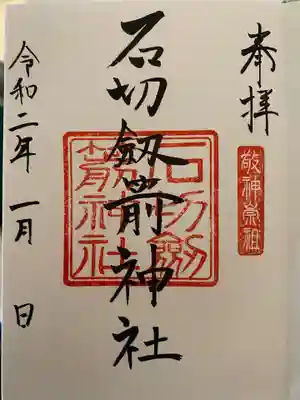 奉拝
敬神崇祖
石切劔箭神社
石切劔箭神社
令和二年一月 日